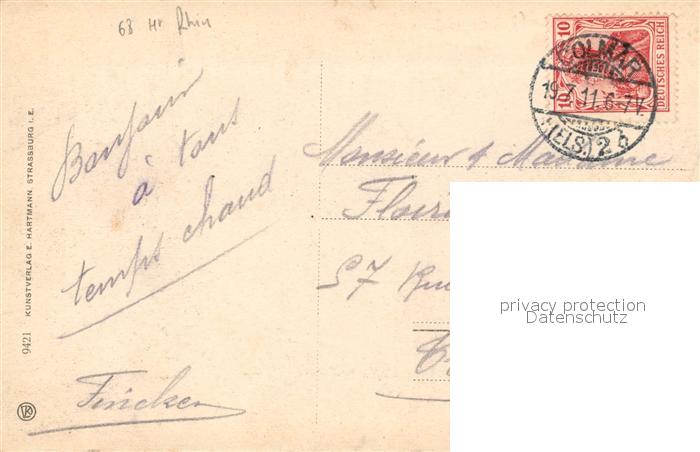 68 Hr Rhin
Bonjour
à tous
temps chaud
Fincker
9421 KUNSTVERLAG E. HARTMANN STRASSBURG I. E.
10 10
DEUTSCHES REICH
COLMAR
19.7.11.6-7V.
(ELS.) 2 b
Monsieur & Madame
57 Rue
privacy protection
Datenschutz